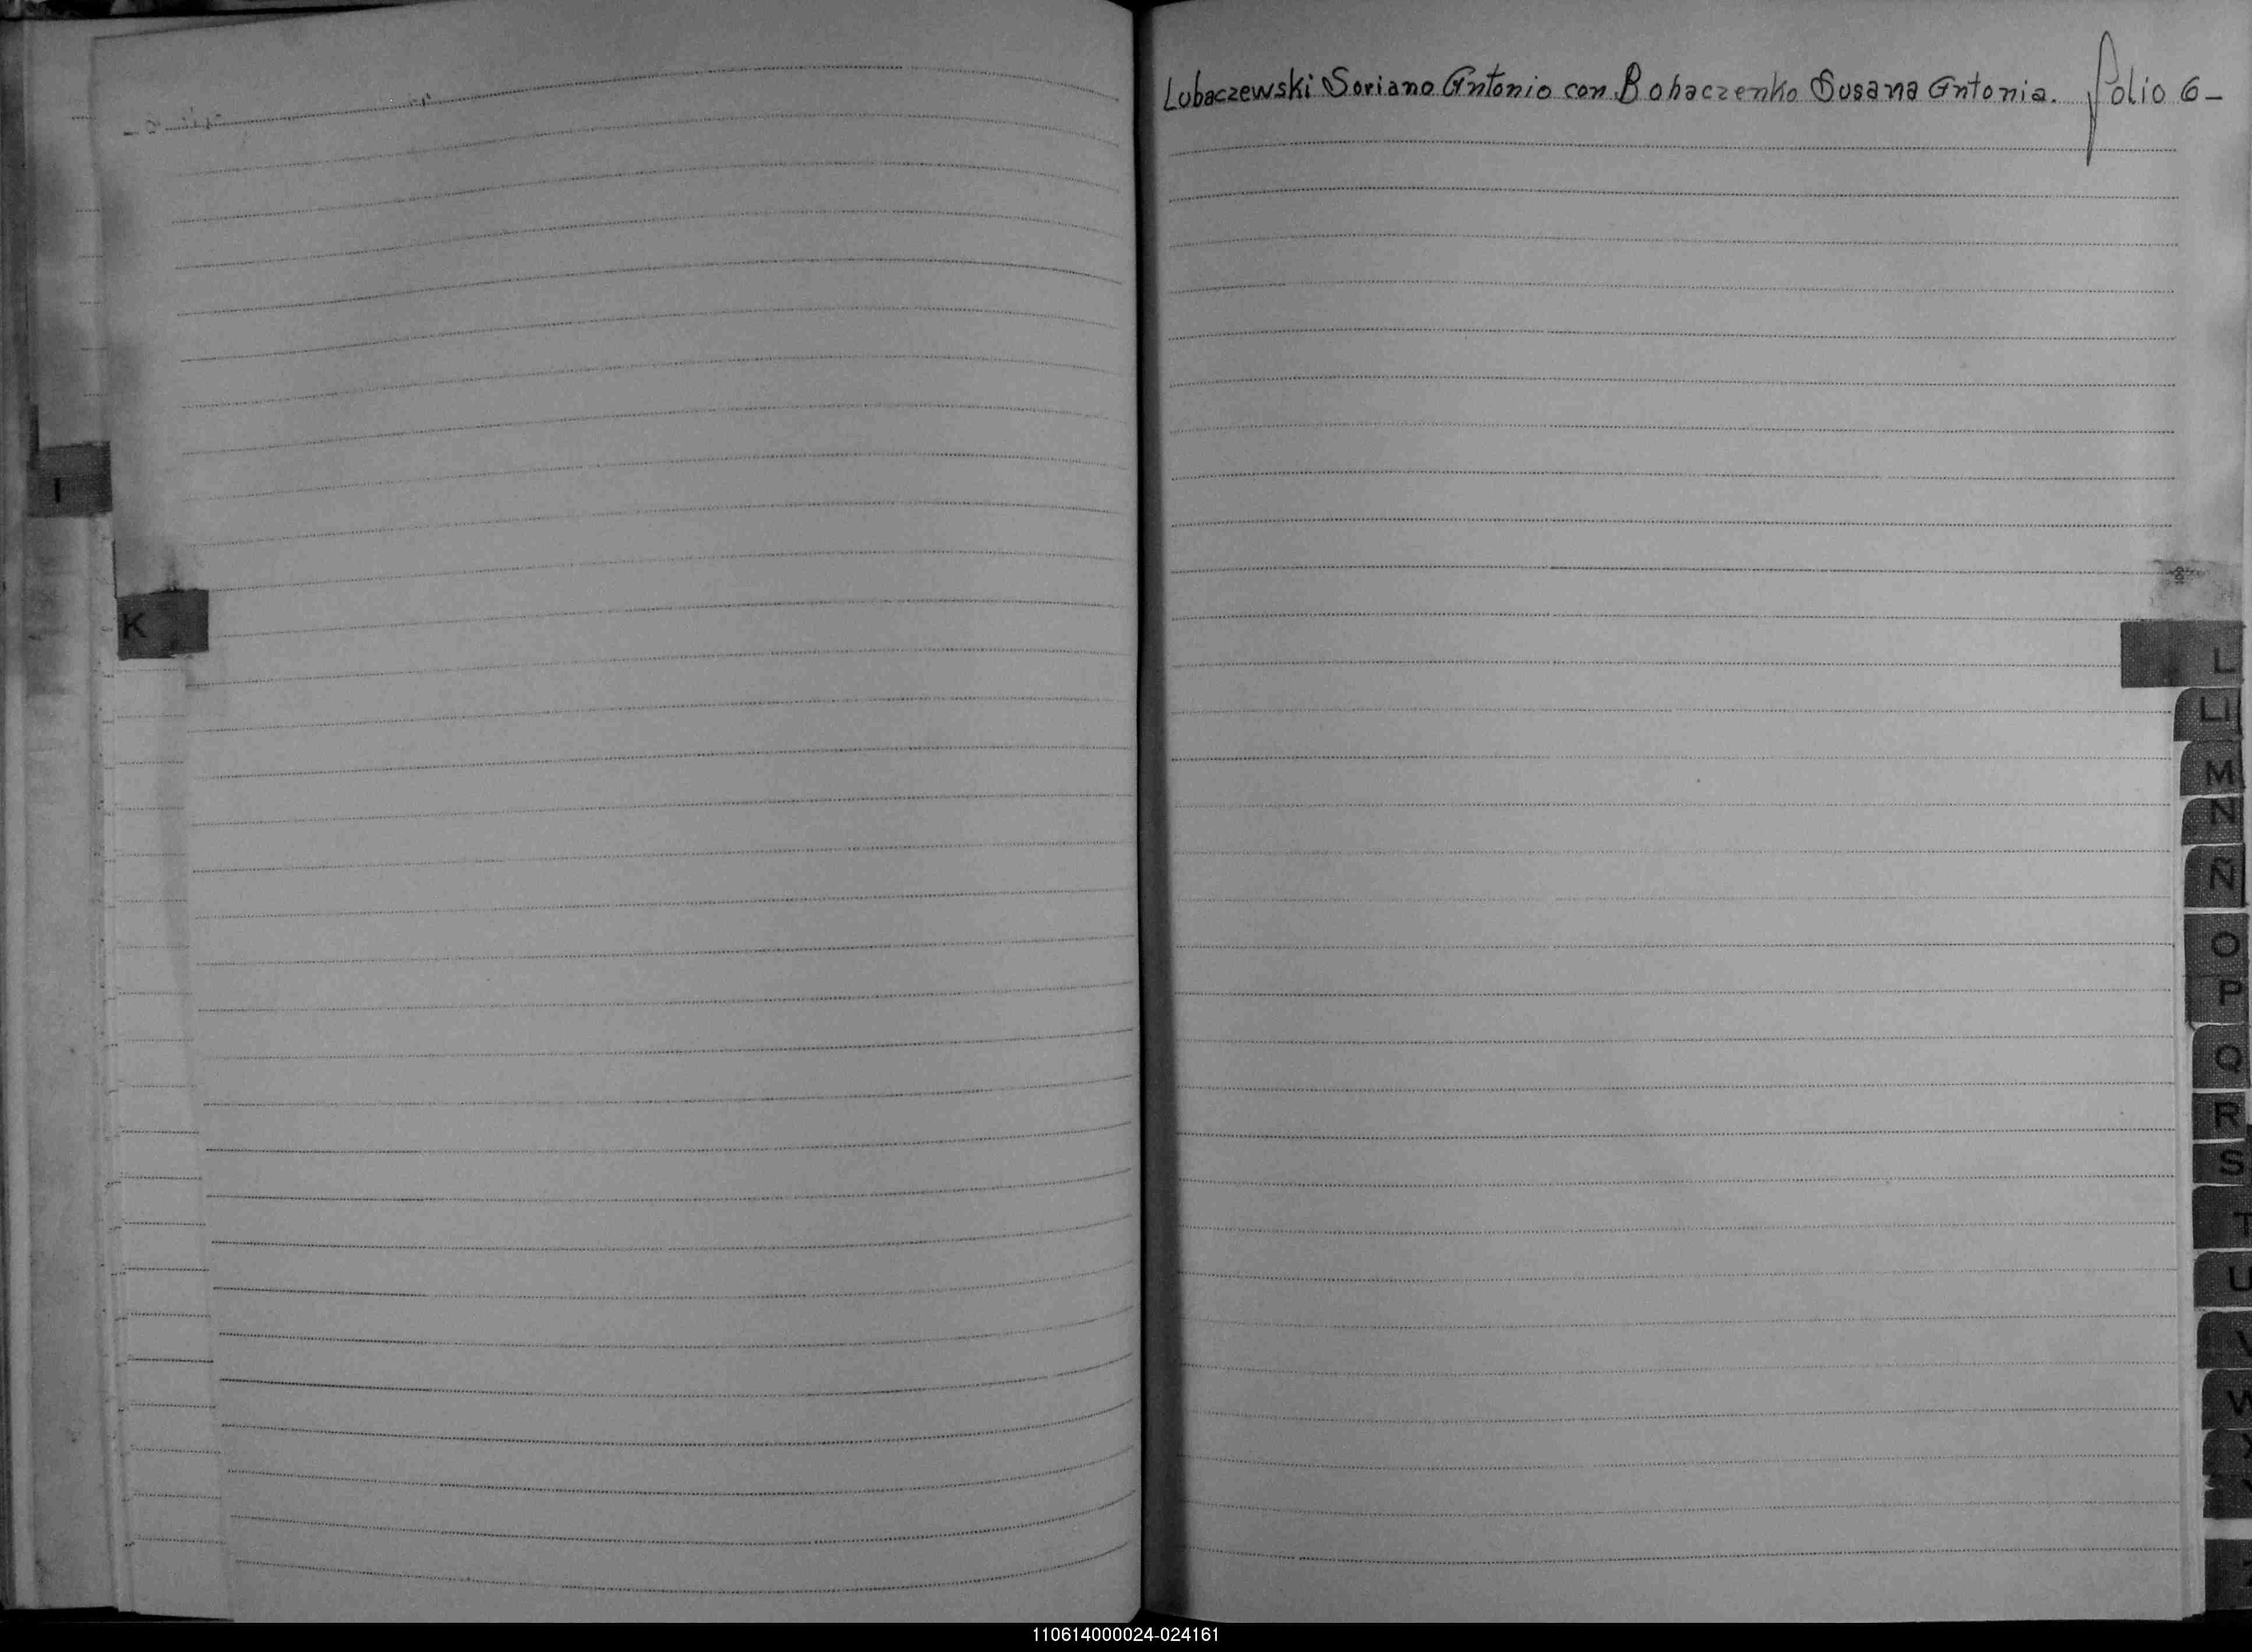 Lubaczewski Soriano Antonio con Bohaczenko Susana Antonia. folio 6-
I
K
L
Ll
M
N
Ñ
O
P
Q
R
S
T
U
V
W
X
110614000024-024161